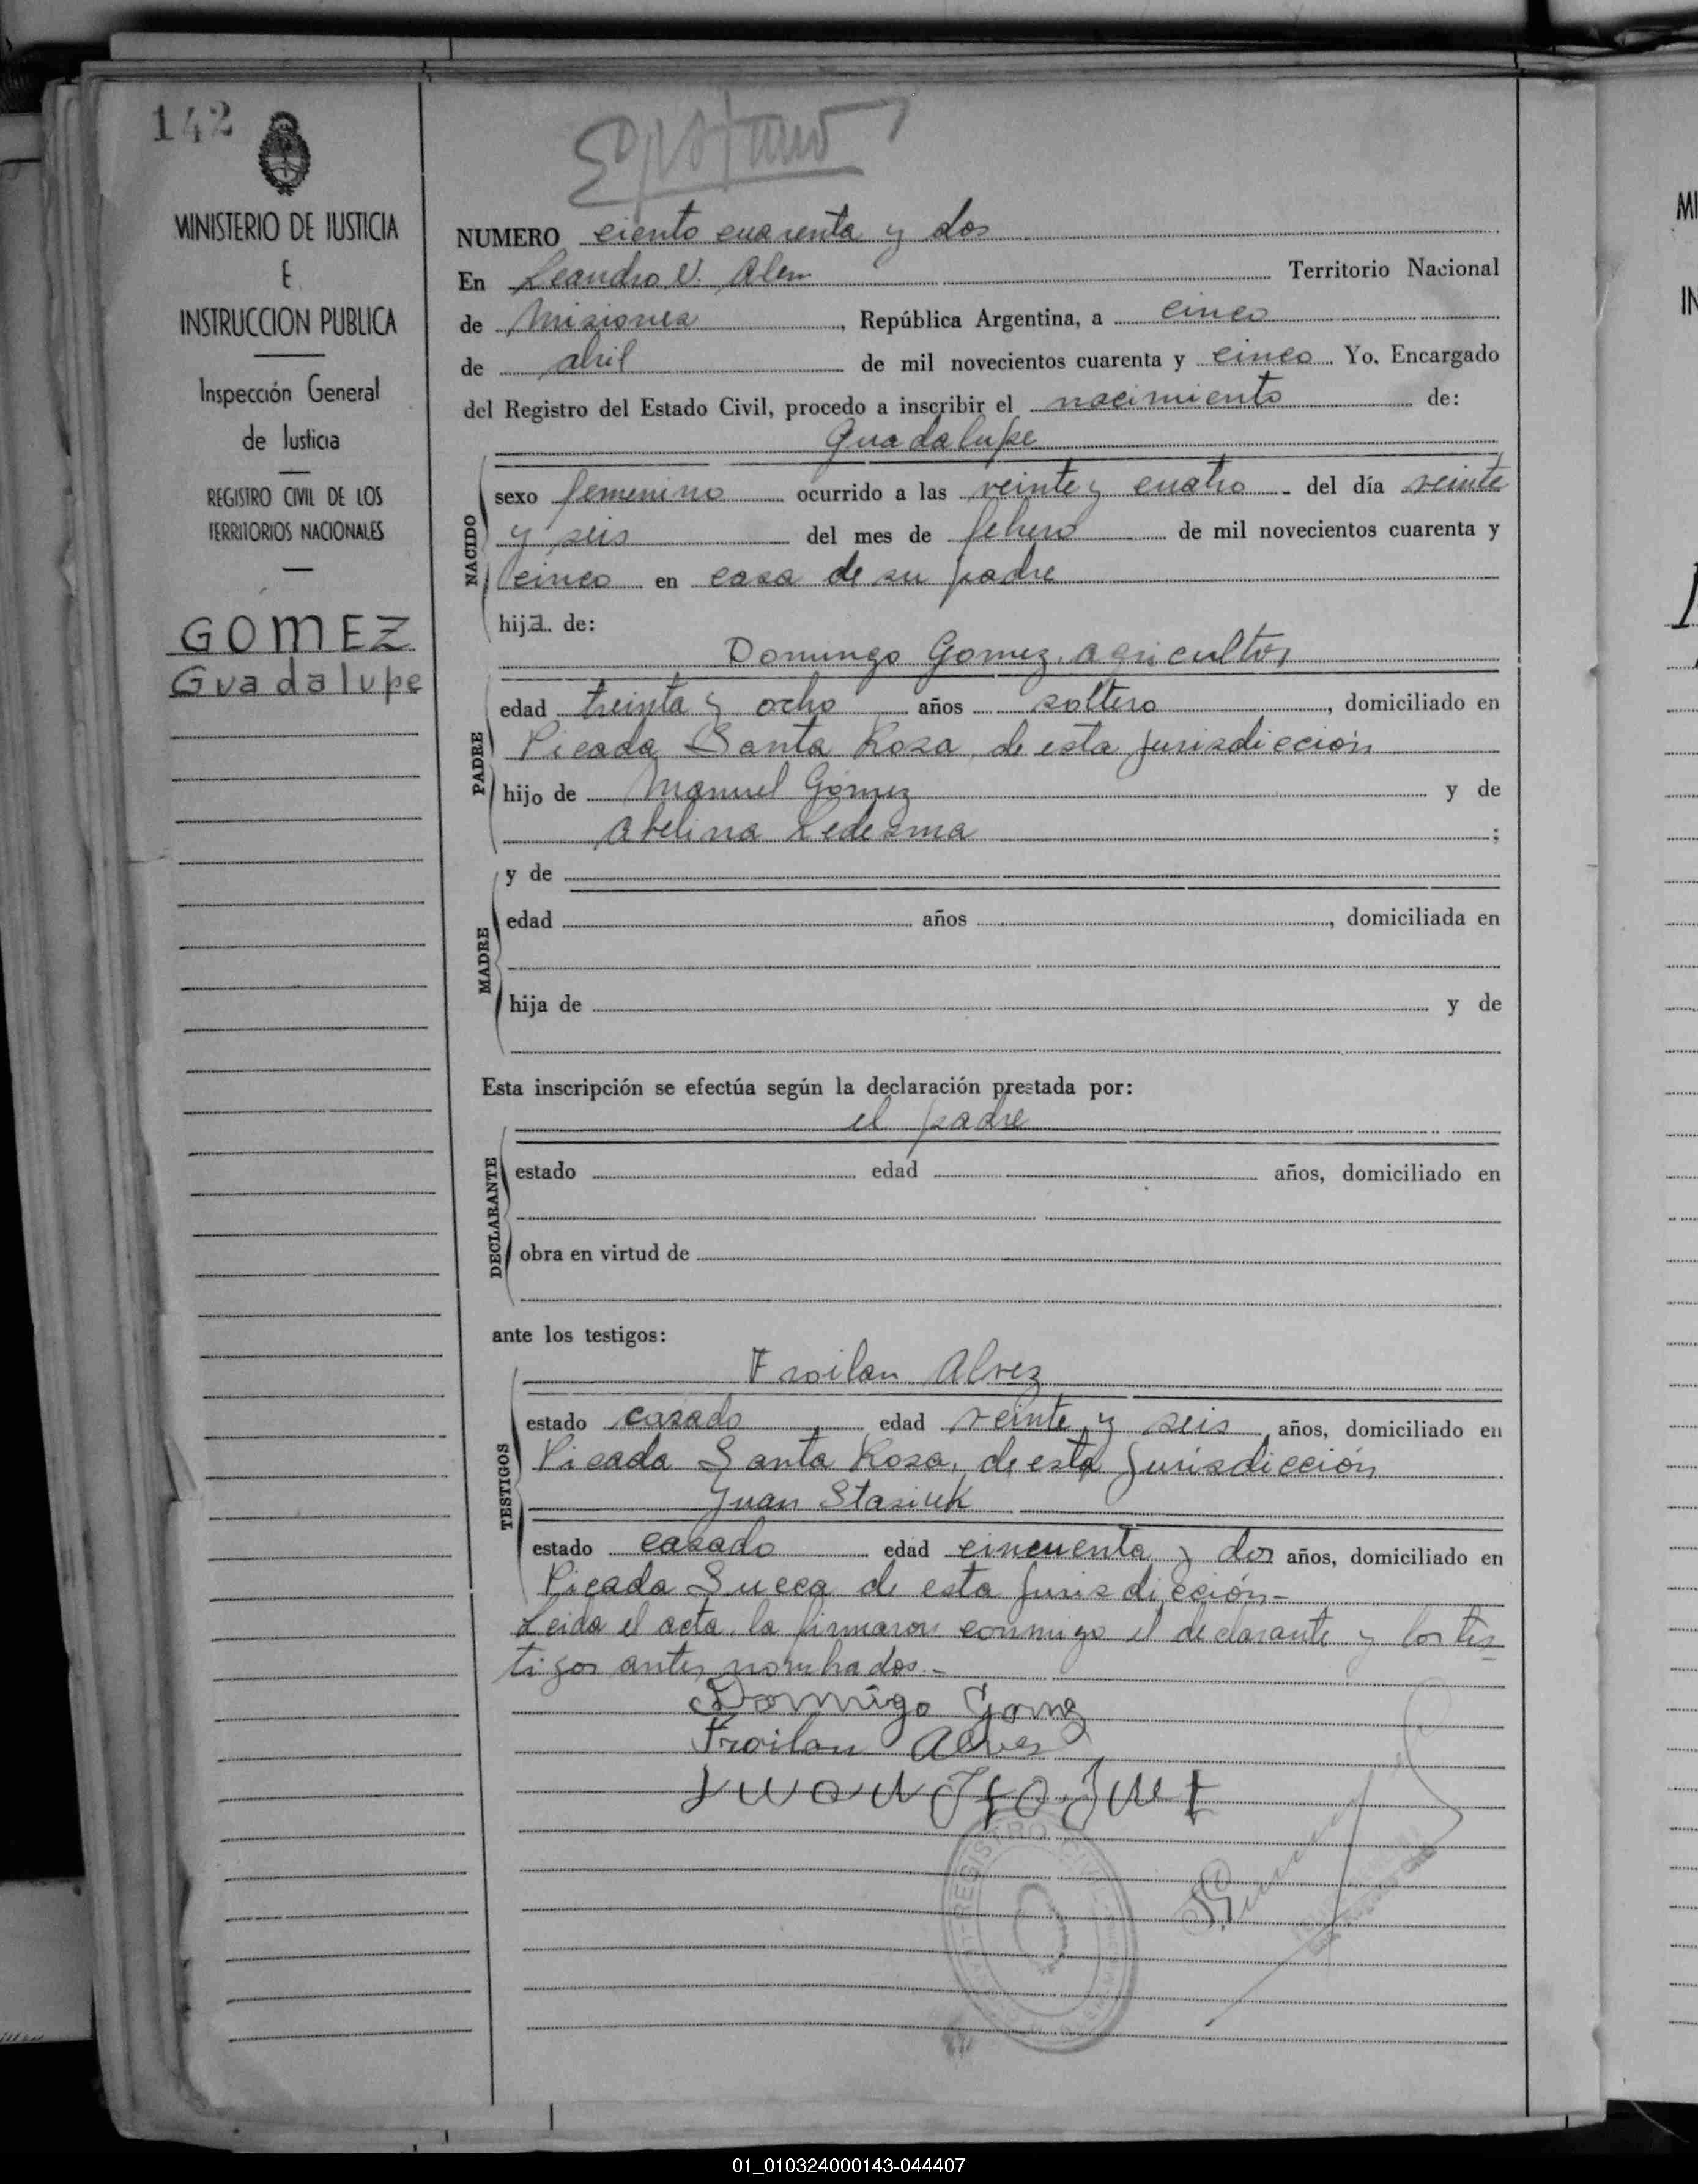 142
MINISTERIO DE JUSTICIA
E
INSTRUCCION PUBLICA
Inspección General
de Justicia
REGISTRO CIVIL DE LOS
TERRITORIOS NACIONALES
GOMEZ
Guadalupe
NUMERO ciento cuarenta y dos
En Leandro N. Alem Territorio Nacional
de Misiones, República Argentina, a cinco
de abril de mil novecientos cuarenta y cinco Yo. Encargado
del Registro del Estado Civil, procedo a inscribir el nacimiento de:
Guadalupe
NACIDO
sexo femenino ocurrido a las veinte y cuatro del día veinte
y seis del mes de febrero de mil novecientos cuarenta y
cinco en casa de su padre
hija de:
Domingo Gomez, agricultor
PADRE
edad treinta y ocho años soltero, domiciliado en
Picada Santa Rosa, de esta jurisdicción
hijo de Manuel Gómez y de
Abelina Ledesma;
MADRE
y de
edad años, domiciliada en
hija de y de
Esta inscripción se efectúa según la declaración prestada por:
el padre
DECLARANTE
estado edad años, domiciliado en
obra en virtud de
ante los testigos:
Froilan Alvez
TESTIGOS
estado casado edad veinte y seis años, domiciliado en
Picada Santa Rosa, de esta jurisdicción
Juan Stasiuk
estado casado edad cincuenta y dos años, domiciliado en
Picada Sueca de esta jurisdicción-
Leida el acta, la firmaron conmigo el declarante y los tes
tigos antes nombrados.-
Domigo Gomez
Froilan Alves
REGISTRO CIVIL
01_010324000143-044407